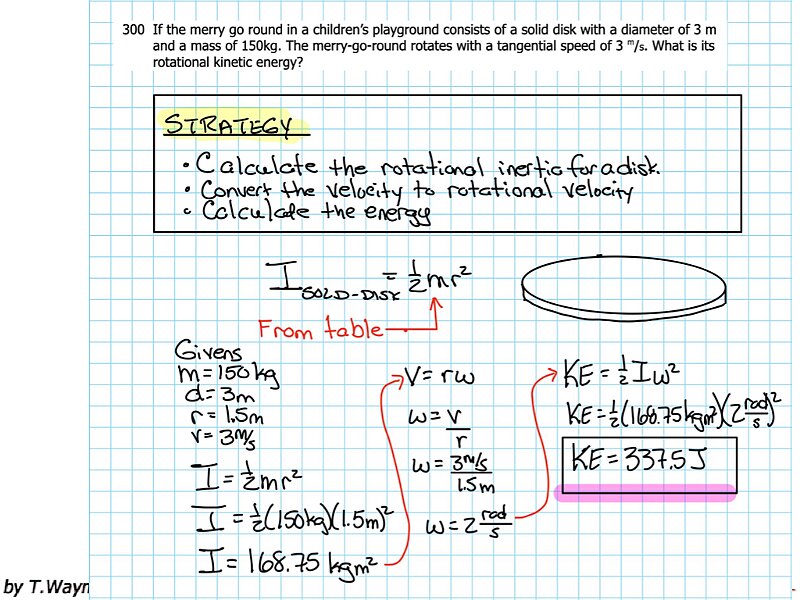 300 If the merry go round in a children’s playground consists of a solid disk with a diameter of 3 m
and a mass of 150kg. The merry-go-round rotates with a tangential speed of 3 ᵐ/s. What is its
rotational kinetic energy?
STRATEGY
• Calculate the rotational inertia for a disk.
• Convert the velocity to rotational velocity
• Calculate the energy
I SOLID-DISK = 1/2 mr²
From table
Givens
m = 150 kg
d = 3m
r = 1.5m
v = 3 m/s
I = 1/2 mr²
I = 1/2 (150kg)(1.5m)²
I = 168.75 kgm²
V = rω
ω = V/r
ω = 3 m/s / 1.5m
ω = 2 rad/s
KE = 1/2 Iω²
KE = 1/2 (168.75 kgm²)(2 rad/s)²
KE = 337.5 J
by T.Wayn